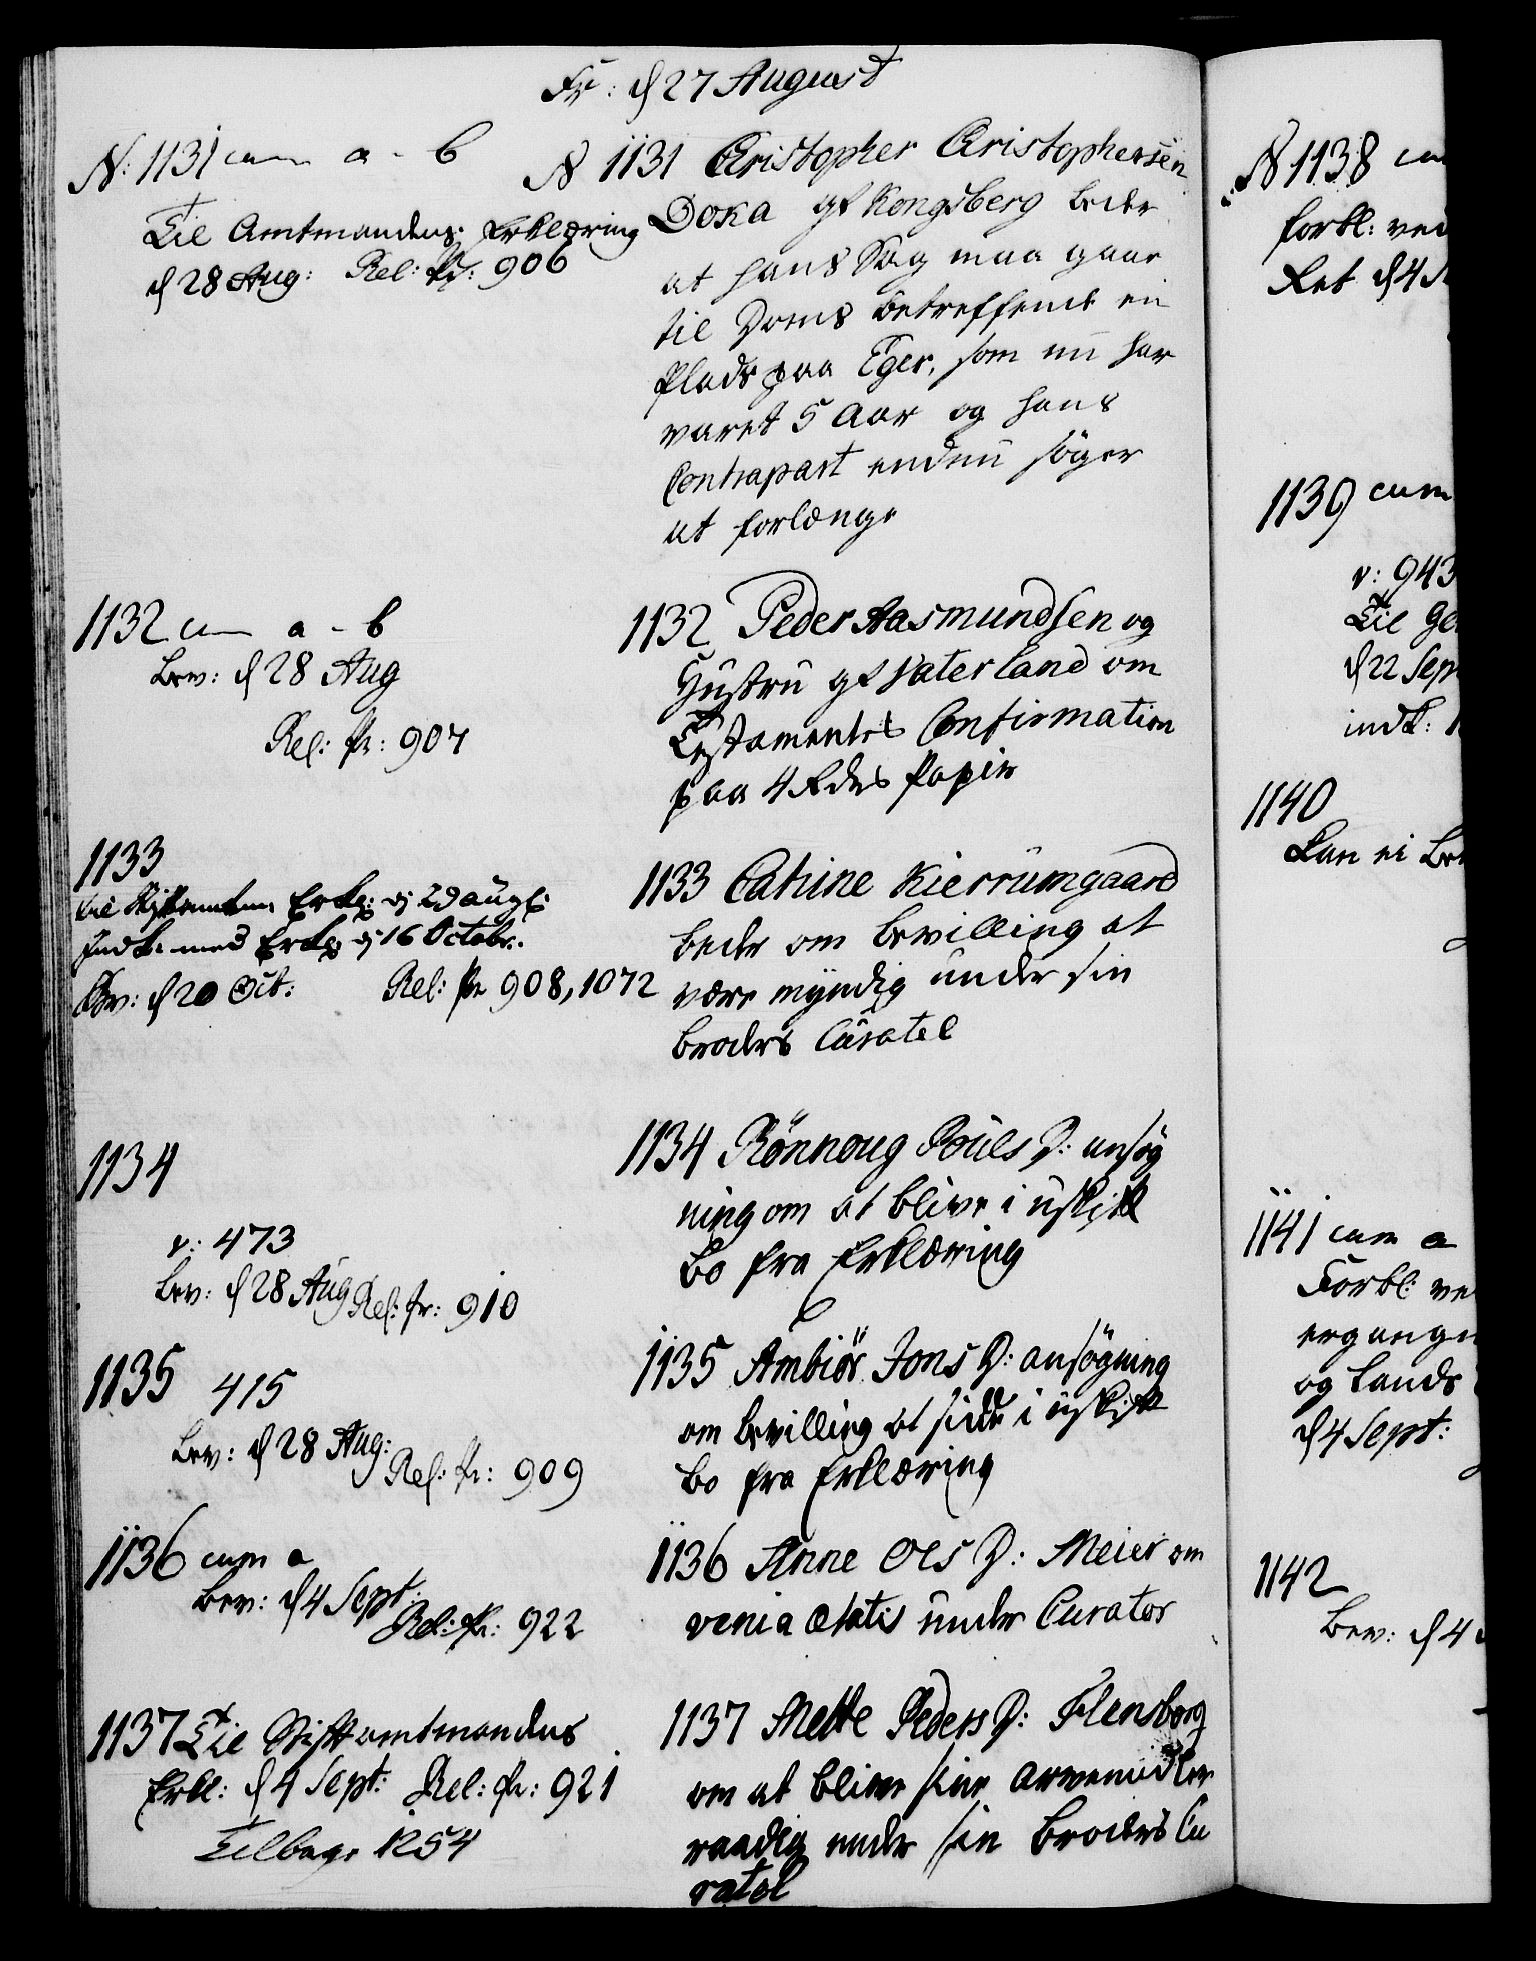 Fr: d 27 August
N: 1131 cum a - b
Til Amtmandens Erklæring
d 28 Aug: Rel: Pr: 906
N 1131 Christopher Christophersen
Doka af Kongsberg beder
at hans Sag maa gaae
til Doms betreffende en
Plads paa Eger, som nu har
varet 5 Aar og hans
Contrapart endnu søger
at forlænge
1132 cum a - b
Bev: d 28 Aug
Rel: Pr: 907
1132 Peder Aasmundsen og
Hustru af Vaterland om
Testamentes Confirmation
paa 4 Rdrs Papir
1133
til Stiftamtm Erkl: d 29 Augs:
Indk: med Erkl: d 16 Octobr:
Bev: d 20 Oct: Rel: Pr 908, 1072
1133 Cathrine Kierrumgaard
beder om bevilling at
være myndig under sin
broders Curatel
1134
v: 473
Bev: d 28 Aug Rel: Pr: 910
1134 Rønnoug Pouls D: ansøg
ning om at blive i uskift
bo fra Erklæring
1135 415
Bev: d 28 Aug: Rel: Pr: 909
1135 Ambiør Jons D: ansøgning
om bevilling at sidde i uskift
bo fra Erklæring
1136 cum a
Bev: d 4 Sept: Rel: Pr: 922
1136 Anne Ols D: Meier om
venia ætatis under Curator
1137 Til Stiftamtmandens
Erkl: d 4 Sept: Rel: Pr: 921
Tilbage 1254
1137 Mette Peders D: Flensborg
om at blive sine arvemidler
raadig under sin broders Cu
ratel
N 1138 cu
forkl: ved
Ret d 4 S
1139 cum
v: 943
Til Ge
d 22 Sep
indk: 1
1140
Kan ei be
1141 cum a
Forkl: ve
ergange
og Lands
d 4 Sept:
1142
Bev: d 4